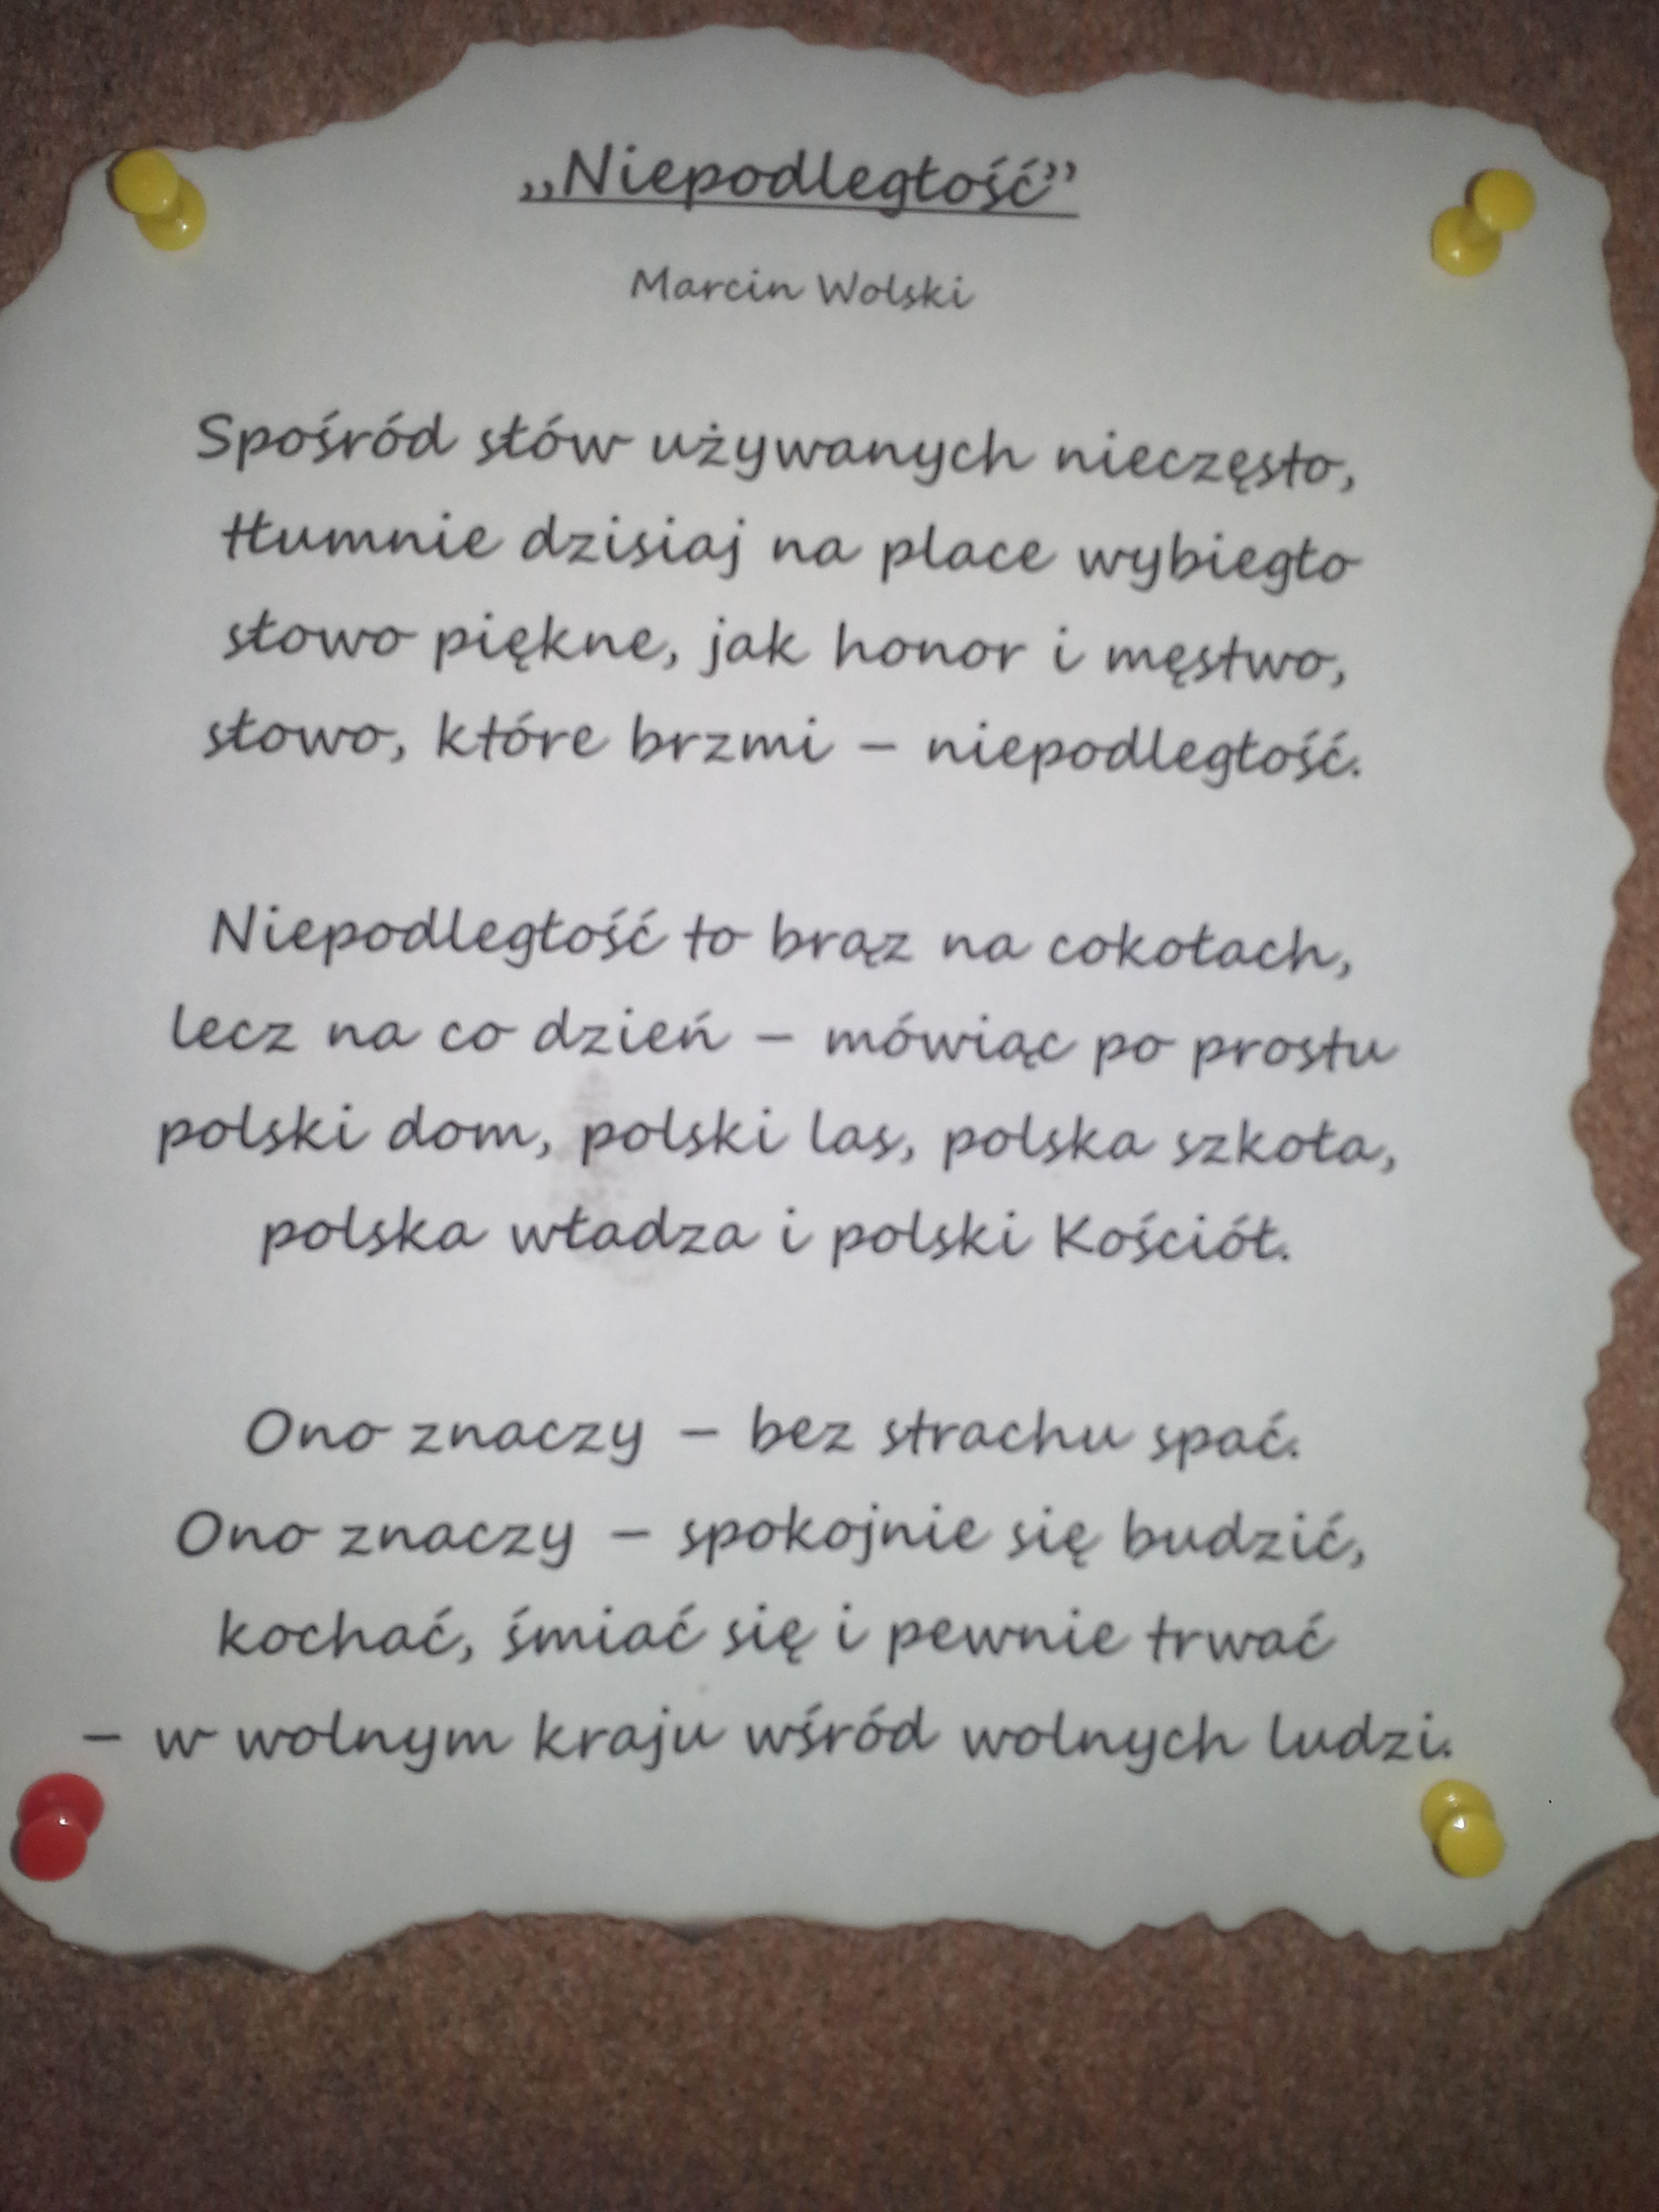 „Niepodległość”
Marcin Wolski
Spośród słów używanych nieczęsto,
tłumnie dzisiaj na place wybiegło
słowo piękne, jak honor i męstwo,
słowo, które brzmi – niepodległość.
Niepodległość to brąz na cokołach,
lecz na co dzień – mówiąc po prostu
polski dom, polski las, polska szkoła,
polska władza i polski Kościół.
Ono znaczy – bez strachu spać.
Ono znaczy – spokojnie się budzić,
kochać, śmiać się i pewnie trwać
– w wolnym kraju wśród wolnych ludzi.